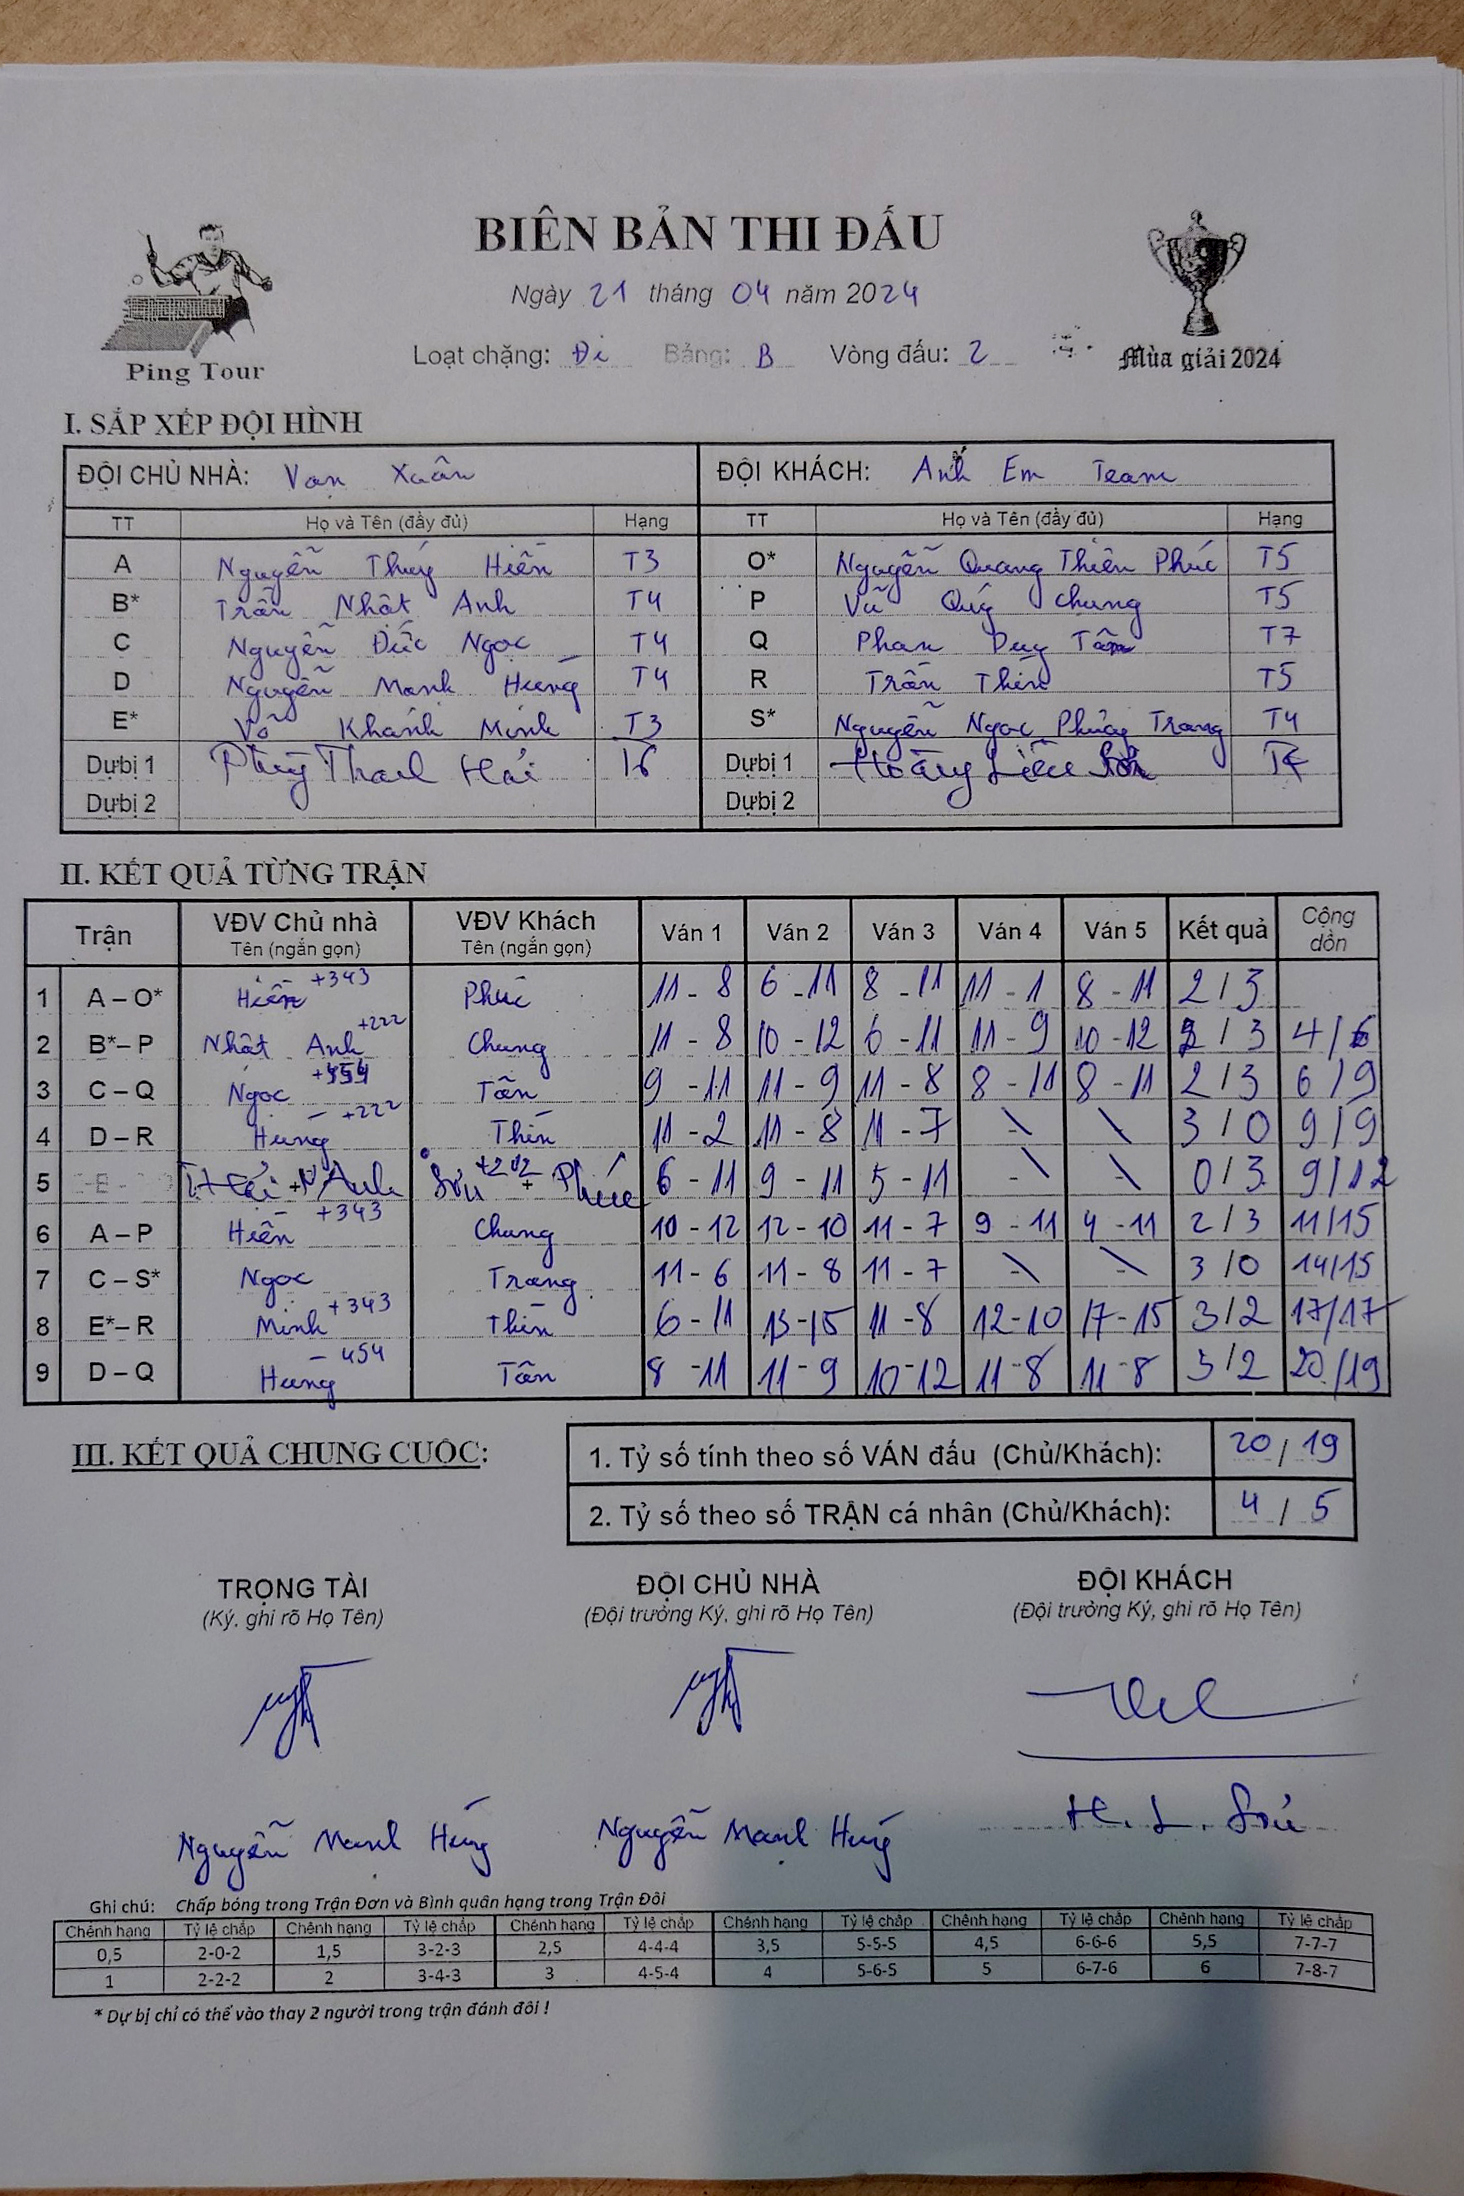 BIÊN BẢN THI ĐẤU
Ngày 21 tháng 04 năm 2024
Loạt chặng: Đi Bảng: B Vòng đấu: 2
Ping Tour
Mùa giải 2024
I. SẮP XẾP ĐỘI HÌNH
ĐỘI CHỦ NHÀ: Vạn Xuân ĐỘI KHÁCH: Anh Em Team
TT Họ và Tên (đầy đủ) Hạng TT Họ và Tên (đầy đủ) Hạng
A Nguyễn Thúy Hiền T3 O* Nguyễn Quang Thiên Phúc T5
B* Trần Nhật Anh T4 P Vũ Quý Chung T5
C Nguyễn Đức Ngọc T4 Q Phan Duy Tân T7
D Nguyễn Mạnh Hùng T4 R Trần Thìn T5
E* Võ Khánh Minh T3 S* Nguyễn Ngọc Phương Trang T4
Dự bị 1 Phùng Thanh Hải T6 Dự bị 1 Hoàng Liên Sơn
Dự bị 2 Dự bị 2
II. KẾT QUẢ TỪNG TRẬN
Trận VĐV Chủ nhà Tên (ngắn gọn) VĐV Khách Tên (ngắn gọn) Ván 1 Ván 2 Ván 3 Ván 4 Ván 5 Kết quả Cộng dồn
1 A – O* Hiền +343 Phúc 11 - 8 6 - 11 8 - 11 11 - 1 8 - 11 2 / 3
2 B* – P Nhật Anh +222 Chung 11 - 8 10 - 12 6 - 11 11 - 9 10 - 12 2 / 3 4 / 6
3 C – Q Ngọc +454 Tân 9 - 11 11 - 9 11 - 8 8 - 11 8 - 11 2 / 3 6 / 9
4 D – R Hùng - +222 Thìn 11 - 2 11 - 8 11 - 7 3 / 0 9 / 9
5 T.Hải + N Anh Sơn +202 + Phúc 6 - 11 9 - 11 5 - 11 0 / 3 9 / 12
6 A – P Hiền - +343 Chung 10 - 12 12 - 10 11 - 7 9 - 11 4 - 11 2 / 3 11/15
7 C – S* Ngọc Trang 11 - 6 11 - 8 11 - 7 3 / 0 14/15
8 E* – R Minh +343 Thìn 6 - 11 13 - 15 11 - 8 12 - 10 17 - 15 3 / 2 17/17
9 D – Q Hùng - 454 Tân 8 - 11 11 - 9 10 - 12 11 - 8 11 - 8 3 / 2 20/19
III. KẾT QUẢ CHUNG CUỘC:
1. Tỷ số tính theo số VÁN đấu (Chủ/Khách): 20 / 19
2. Tỷ số theo số TRẬN cá nhân (Chủ/Khách): 4 / 5
TRỌNG TÀI ĐỘI CHỦ NHÀ ĐỘI KHÁCH
(Ký, ghi rõ Họ Tên) (Đội trưởng Ký, ghi rõ Họ Tên) (Đội trưởng Ký, ghi rõ Họ Tên)
Nguyễn Mạnh Hùng Nguyễn Mạnh Hùng H. L. Sơn
Ghi chú: Chấp bóng trong Trận Đơn và Bình quân hạng trong Trận Đôi
Chênh hạng Tỷ lệ chấp Chênh hạng Tỷ lệ chấp Chênh hạng Tỷ lệ chấp Chênh hạng Tỷ lệ chấp Chênh hạng Tỷ lệ chấp Chênh hạng Tỷ lệ chấp
0,5 2-0-2 1,5 3-2-3 2,5 4-4-4 3,5 5-5-5 4,5 6-6-6 5,5 7-7-7
1 2-2-2 2 3-4-3 3 4-5-4 4 5-6-5 5 6-7-6 6 7-8-7
* Dự bị chỉ có thể vào thay 2 người trong trận đánh đôi !